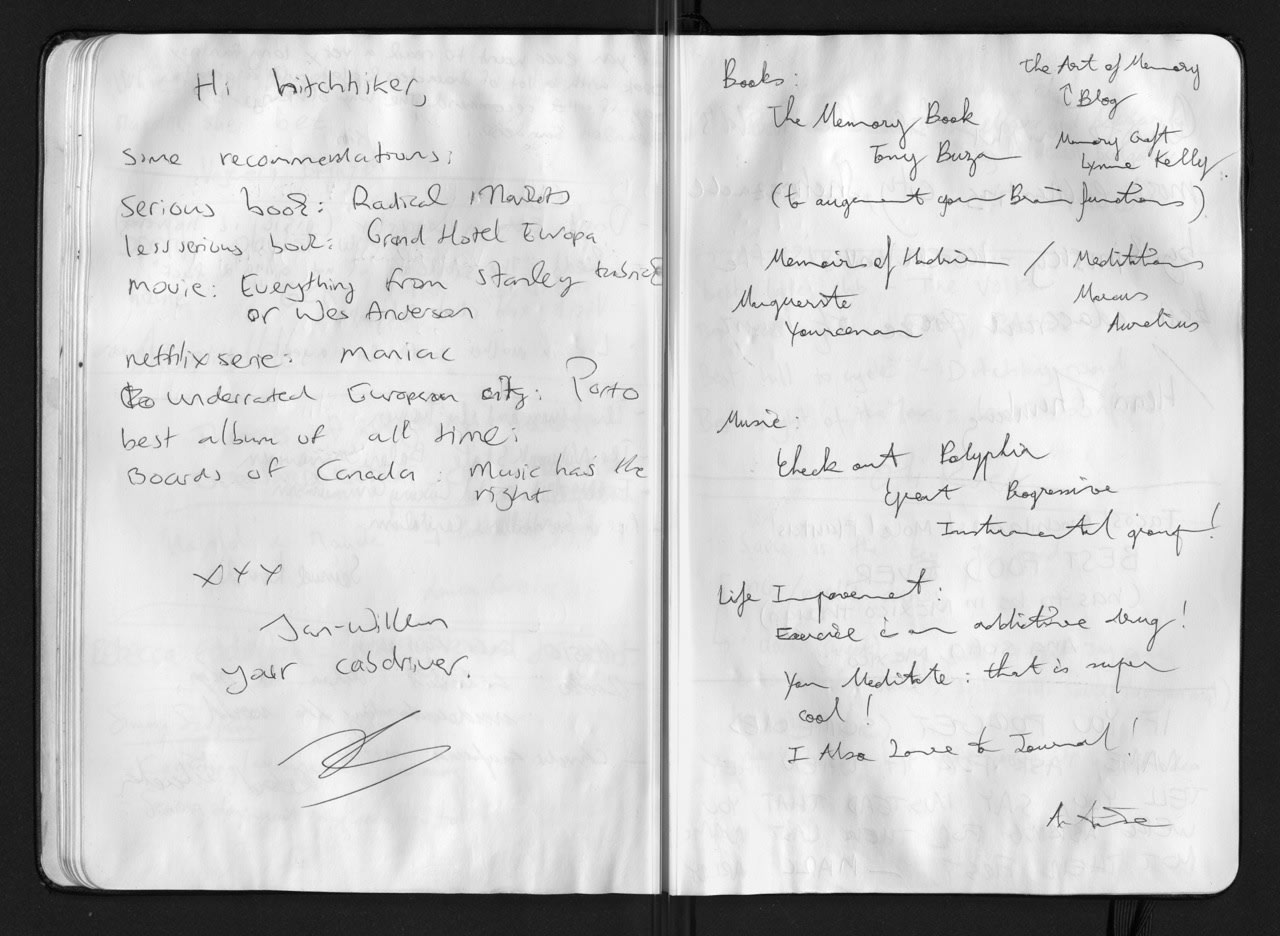 Hi hitchhiker,
Some recommendations:
serious book: Radical Markets
less serious book: Grand Hotel Europa
movie: Everything from Stanley Kubrick
or Wes Anderson
netflix serie: maniac
underrated European city: Porto
best album of all time:
Boards of Canada: Music has the
right
XYX
Jan-Willem
your cabdriver.
Books:
The Art of Memory
↑ Blog
The Memory Book
Tony Buzan
Memory Craft
Lynne Kelly
(to augment your Brain functions)
Memoirs of Hadrian / Meditations
Marguerite
Yourcenar
Marcus
Aurelius
Music:
Check out Polyphia
Great Progressive
Instrumental group!
Life Improvement:
Exercise is an addictive drug!
You Meditate: that is super
cool!
I Also Love to Journal!